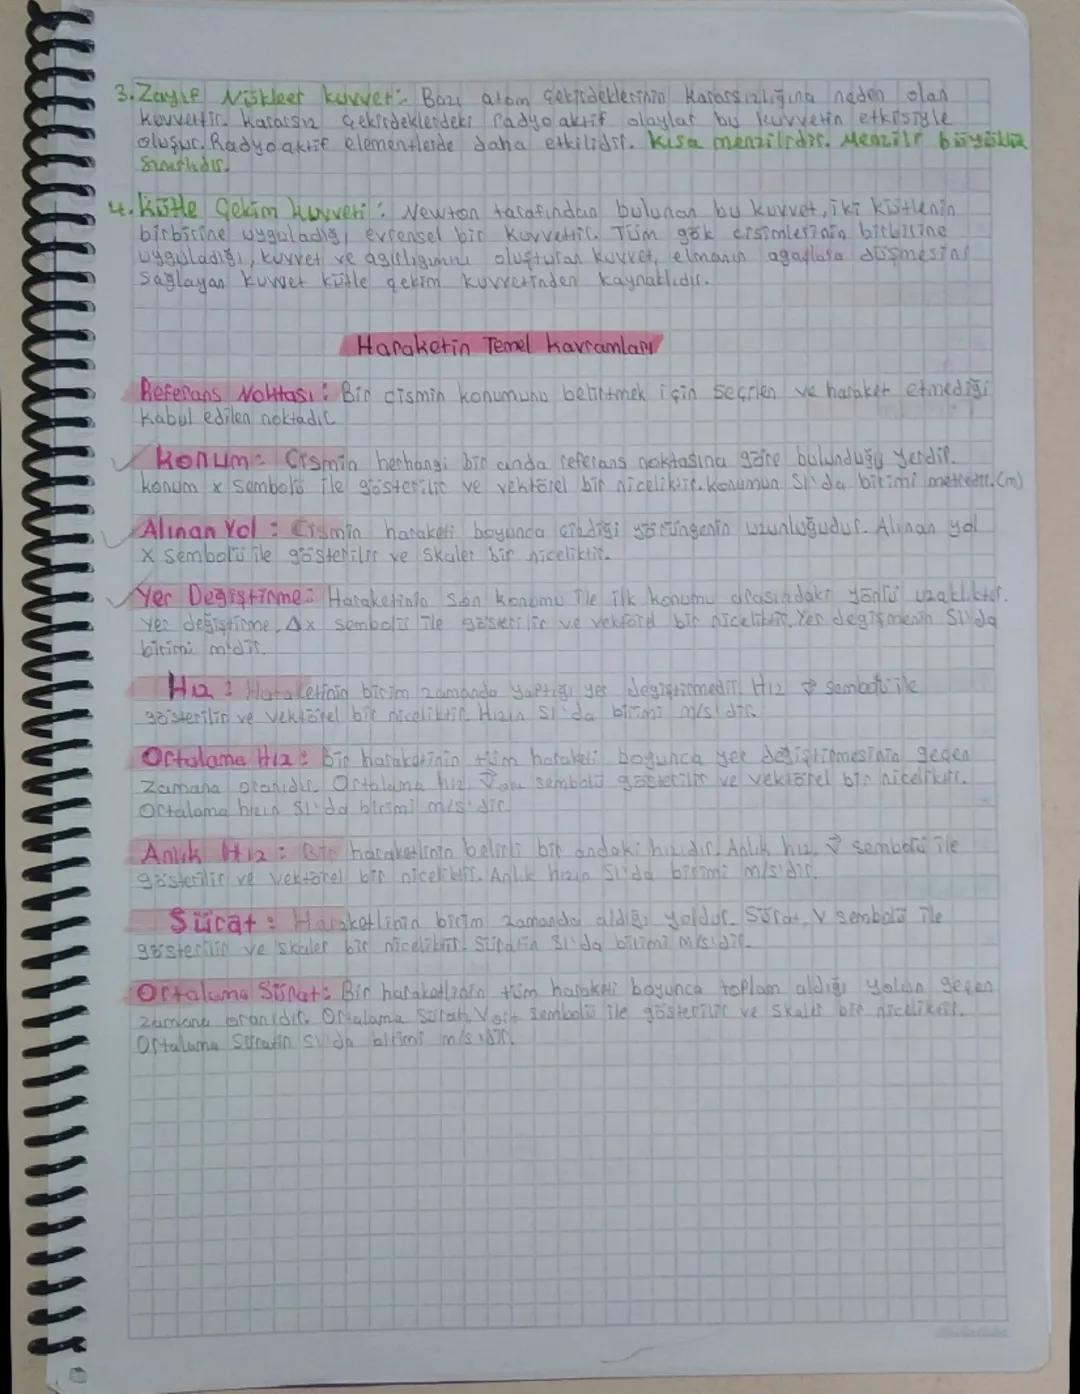 3. Zayıf Nükleer kuvvet: Bazı atom çekirdeklerinin kararsızlığına neden olan
kuvvettir. Kararsız çekirdeklerdeki radyoaktif olaylar bu kuvvetin etkisiyle
oluşur. Radyoaktif elementlerde daha etkilidir. Kısa menzilidir. Menzili büyülü
Sınırlıdır.
4. Kütle Çekim kuvveti: Newton tarafından bulunan bu kuvvet, iki kütlenin
birbirine uyguladığı evrensel bir kuvvettir. Tüm gök cisimlerinin birbirine
uyguladığı, kuvvet ve ağırlığımını oluşturan kuvvet, elmanın agaçlara düşmesini
sağlayan kuvvet kütle çekim kuvvetinden kaynaklıdır.
Haraketin Temel kavramları
Referans Noktası: Bir cismin konumunu belirtmek için seçilen ve haraket etmediği
kabul edilen noktadır
Konum: Cismin herhangi bir anda referans noktasına göre bulunduğu yerdir.
konum x sembolü ile gösterilir ve vektörel bir niceliktir. konumun SI'da birimi metredir. (m)
Alınan Yol: Cismin haraketi boyunca çizdiği yörüngenin uzunluğudur. Alınan yol
X sembolü ile gösterilir ve skaler bir niceliktir.
Yer Değiştirme: Haraketinin son konumu ile ilk konumu arasındaki yönlü uzaklıktır.
Yer değiştirme, Δx sembolü ile gösterilir ve vektörel bir niceliktir. Yer değişmenin SI'da
birimi m'dir.
Hız: Haraketinin birim zamanda yaptığı yer değiştirmedir. Hız v⃗ sembolü ile
gösterilir ve vektörel bir niceliktir. Hızın SI'da birimi m/s'dir.
Ortalama Hız: Bir haraketinin tüm haraketi boyunca yer değiştirmesinin geçen
zamana oranıdır. Ortalama hız sembolü gösterilir ve vektörel bir niceliktir.
Ortalama hızın SI'da birimi m/s'dir.
Anlık Hız: Bir haraketlinin belirli bir andaki hızıdır. Anlık hız, v⃗ sembolü ile
gösterilir ve vektörel bir niceliktir. Anlık hızın SI'da birimi m/s'dir.
Sürat: Haraketlinin birim zamanda aldığı yoldur. Sürat, V sembolü ile
gösterilir ve skaler bir niceliktir. Süratin SI'da birimi m/s'dir.
Ortalama Sürat: Bir haraketlinin tüm haraketi boyunca toplam aldığı yolun geçen
zamana oranıdır. Ortalama sürat, Vort sembolü ile gösterilir ve skaler bir niceliktir.
Ortalama Süratin SI'da birimi m/s'dir.